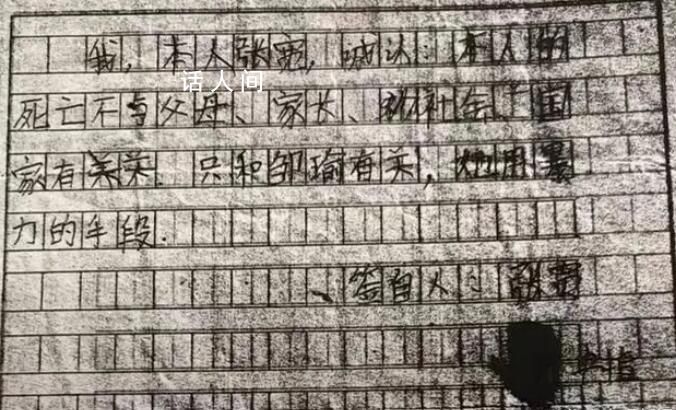 我，本人张宽，诚认：本人的
话人间
死亡不与父母、家长、和社会、国
家有关系．只和邹瑜有关，她用暴
力的手段．
签自人：张宽